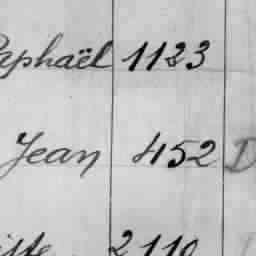 Raphaël 1123
Jean 452 D
2110